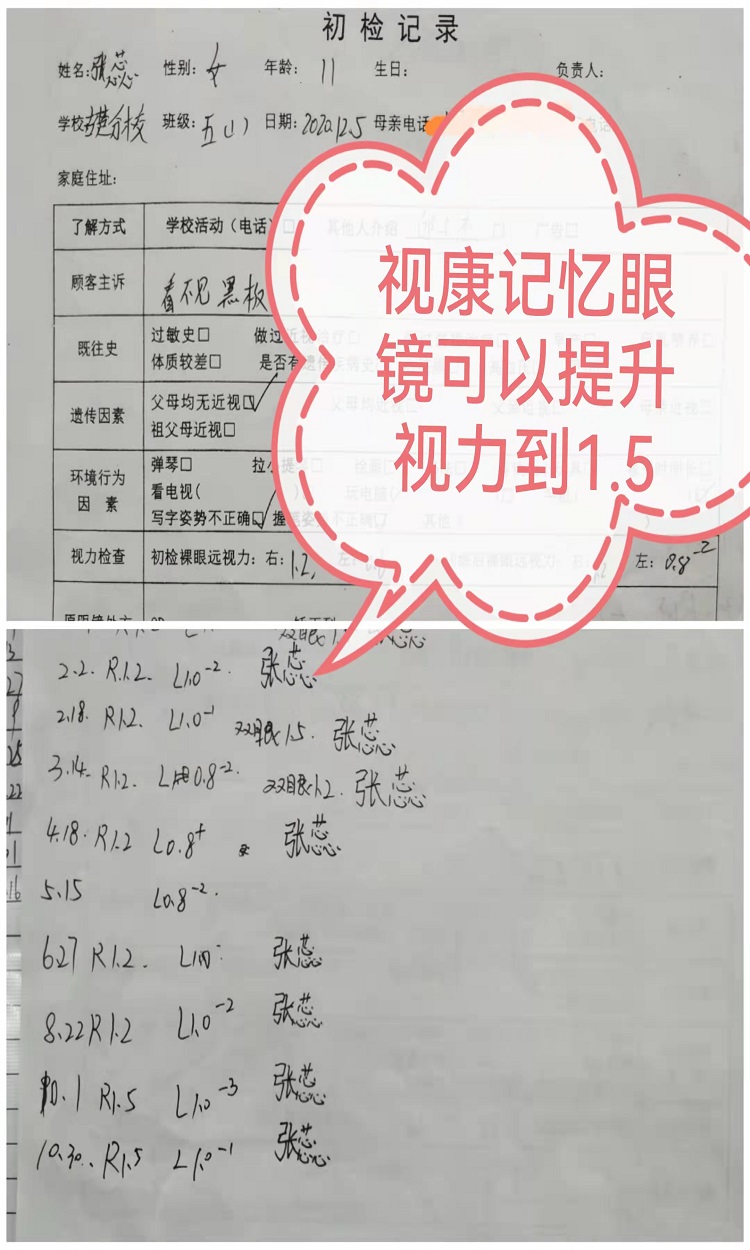 初检记录
姓名: 张蕊 性别: 女 年龄: 11 生日: 负责人:
学校 分校 班级: 五(1) 日期: 2020.12.5 母亲电话
家庭住址:
了解方式 学校活动(电话)□ 其他人介绍 □ 广告□
顾客主诉 看不见黑板
既往史 过敏史□ 做过近视治疗□
体质较差□ 是否有遗传疾病史
遗传因素 父母均无近视☑ 父母均近视□ 母亲近视□
祖父母近视□
环境行为因素 弹琴□ 拉小提琴□
看电视( )□ 玩电脑(
写字姿势不正确☑ 握笔姿势不正确□ 其他(
视力检查 初检裸眼远视力: 右: 1.2, 左: 左: 0.8⁻²
视康记忆眼
镜可以提升
视力到1.5
2.2. R1.2. L1.0⁻². 张蕊
2.18. R1.2. L1.0⁻¹ 双眼1.5. 张蕊
3.14. R1.2. L 0.8⁻². 双眼1.2. 张蕊
4.18. R1.2 L0.8⁺ 张蕊
5.15 L0.8⁻².
6.27 R1.2. 张蕊
8.22 R1.2 L1.0⁻² 张蕊
10.1 R1.5 L1.0⁻³ 张蕊
10.30.. R1.5 L1.0⁻¹ 张蕊